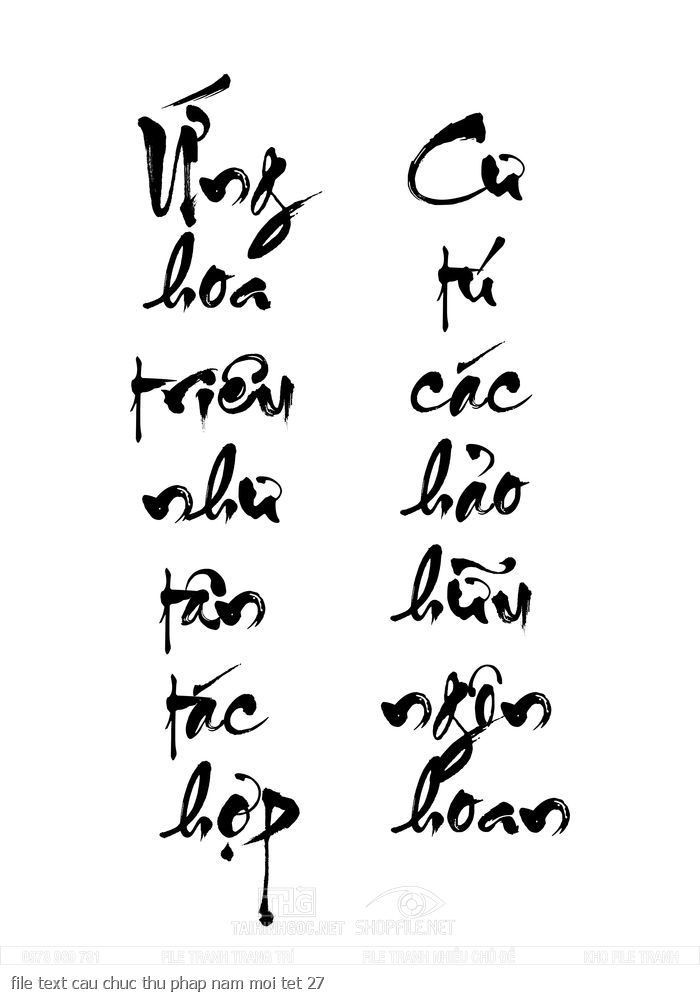 Ứng
hoa
triêu
như
tân
tác
hợp
Cư
tú
các
hảo
hữu
ngôn
hoan
THG
TAIHINHGOC.NET
SHOPFILE.NET
0973 989 781
FILE TRANH TRANG TRÍ
FILE TRANH NHIỀU CHỦ ĐỀ
KHO FILE TRANH
file text cau chuc thu phap nam moi tet 27